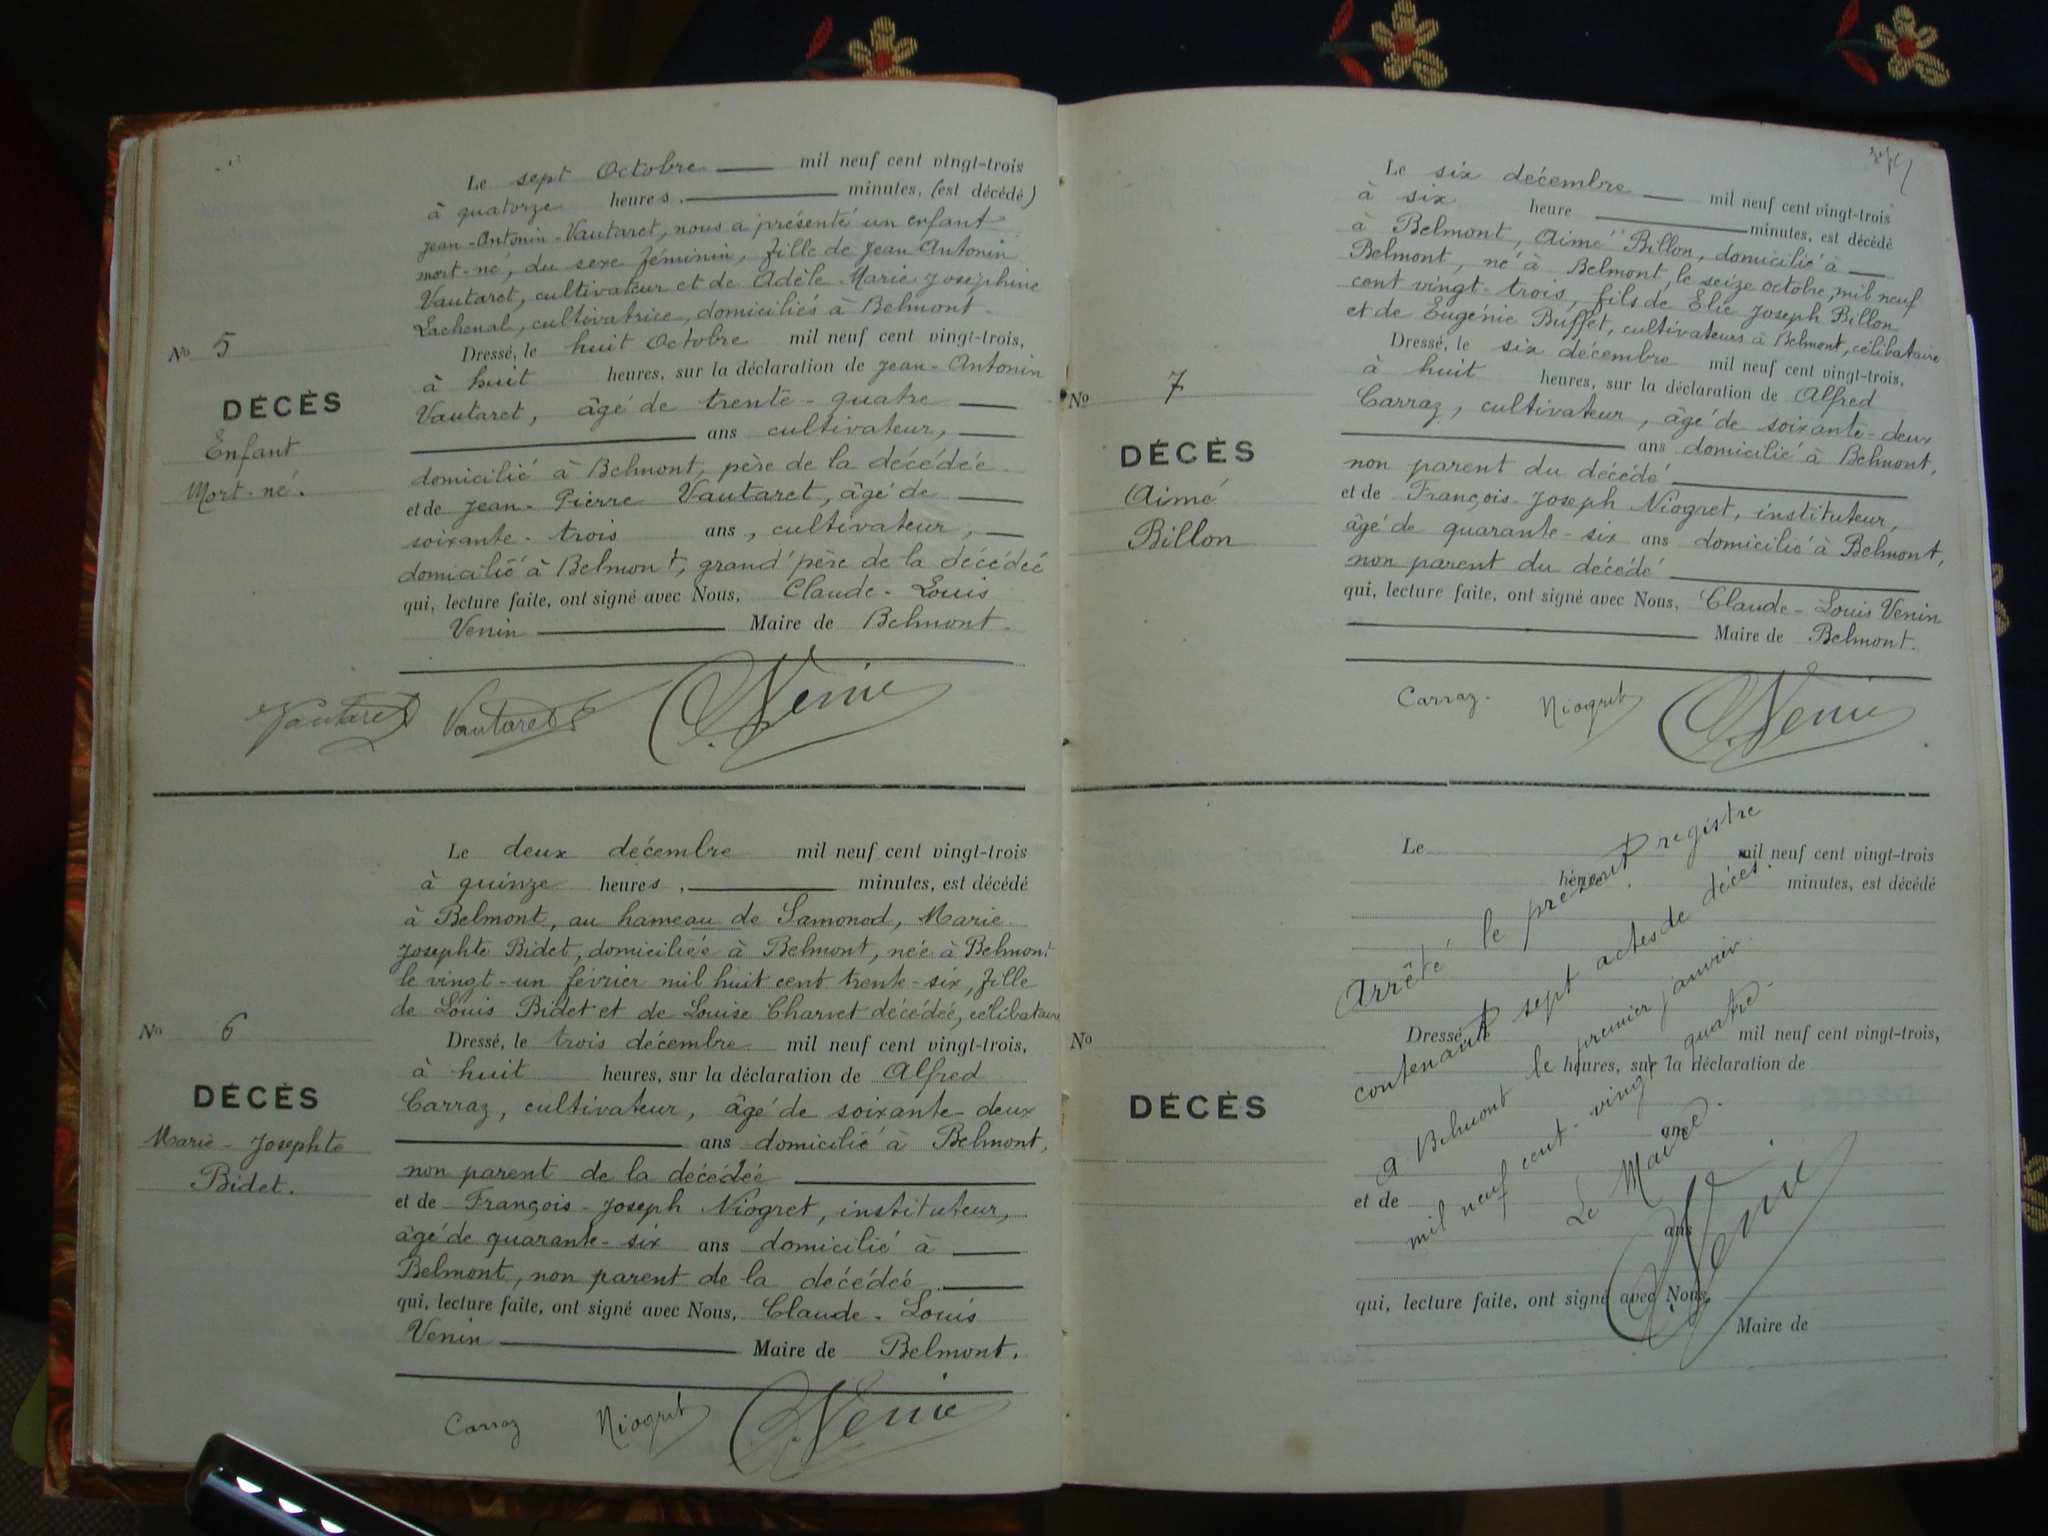 Le sept Octobre mil neuf cent vingt-trois
à quatorze heures, minutes, (est décédé)
Jean-Antonin-Vautaret, nous a présenté un enfant
mort-né, du sexe féminin, fille de Jean Antonin
Vautaret, cultivateur et de Adèle Marie Joséphine
Lachenal, cultivatrice, domiciliés à Belmont.
No 5
DÉCÈS
Enfant
Mort-né.
Dressé, le huit Octobre mil neuf cent vingt-trois,
à huit heures, sur la déclaration de Jean-Antonin
Vautaret, âgé de trente-quatre
ans cultivateur,
domicilié à Belmont, père de la décédée
et de Jean-Pierre Vautaret, âgé de
soixante-trois ans, cultivateur,
domicilié à Belmont, grand'père de la décédée
qui, lecture faite, ont signé avec Nous, Claude-Louis
Venin Maire de Belmont.
Vautaret Vautaret C. Venin
Le deux décembre mil neuf cent vingt-trois
à quinze heures, minutes, est décédé
à Belmont, au hameau de Samonod, Marie
Josephte Bidet, domiciliée à Belmont, née à Belmont
le vingt-un février mil huit cent trente-six, fille
de Louis Bidet et de Louise Charvet décédée, célibataire
No 6
DÉCÈS
Marie-Josephte
Bidet.
Dressé, le trois décembre mil neuf cent vingt-trois,
à huit heures, sur la déclaration de Alfred
Carraz, cultivateur, âgé de soixante-deux
ans domicilié à Belmont,
non parent de la décédée
et de François-Joseph Niogret, instituteur,
âgé de quarante-six ans domicilié à
Belmont, non parent de la décédée
qui, lecture faite, ont signé avec Nous, Claude-Louis
Venin Maire de Belmont.
Carraz Niogret C. Venin
Le six décembre mil neuf cent vingt-trois
à six heure minutes, est décédé
à Belmont, Aimé Billon, domicilié à
Belmont, né à Belmont, le seize octobre, mil neuf
cent vingt-trois, fils de Elie Joseph Billon
et de Eugénie Buffet, cultivateurs à Belmont, célibataire
No 7
DÉCÈS
Aimé
Billon
Dressé, le six décembre mil neuf cent vingt-trois,
à huit heures, sur la déclaration de Alfred
Carraz, cultivateur, âgé de soixante-deux
ans domicilié à Belmont,
non parent du décédé
et de François-Joseph Niogret, instituteur,
âgé de quarante-six ans domicilié à Belmont,
non parent du décédé
qui, lecture faite, ont signé avec Nous, Claude-Louis Venin
Maire de Belmont.
Carraz. Niogret C. Venin
Le mil neuf cent vingt-trois
heure minutes, est décédé
No
DÉCÈS
Dressé, le mil neuf cent vingt-trois,
heures, sur la déclaration de
ans
et de
ans
qui, lecture faite, ont signé avec Nous,
Maire de
Arrêté le présent registre
contenant sept actes de décès.
A Belmont le premier janvier
mil neuf cent-vingt quatre.
Le Maire.
C. Venin